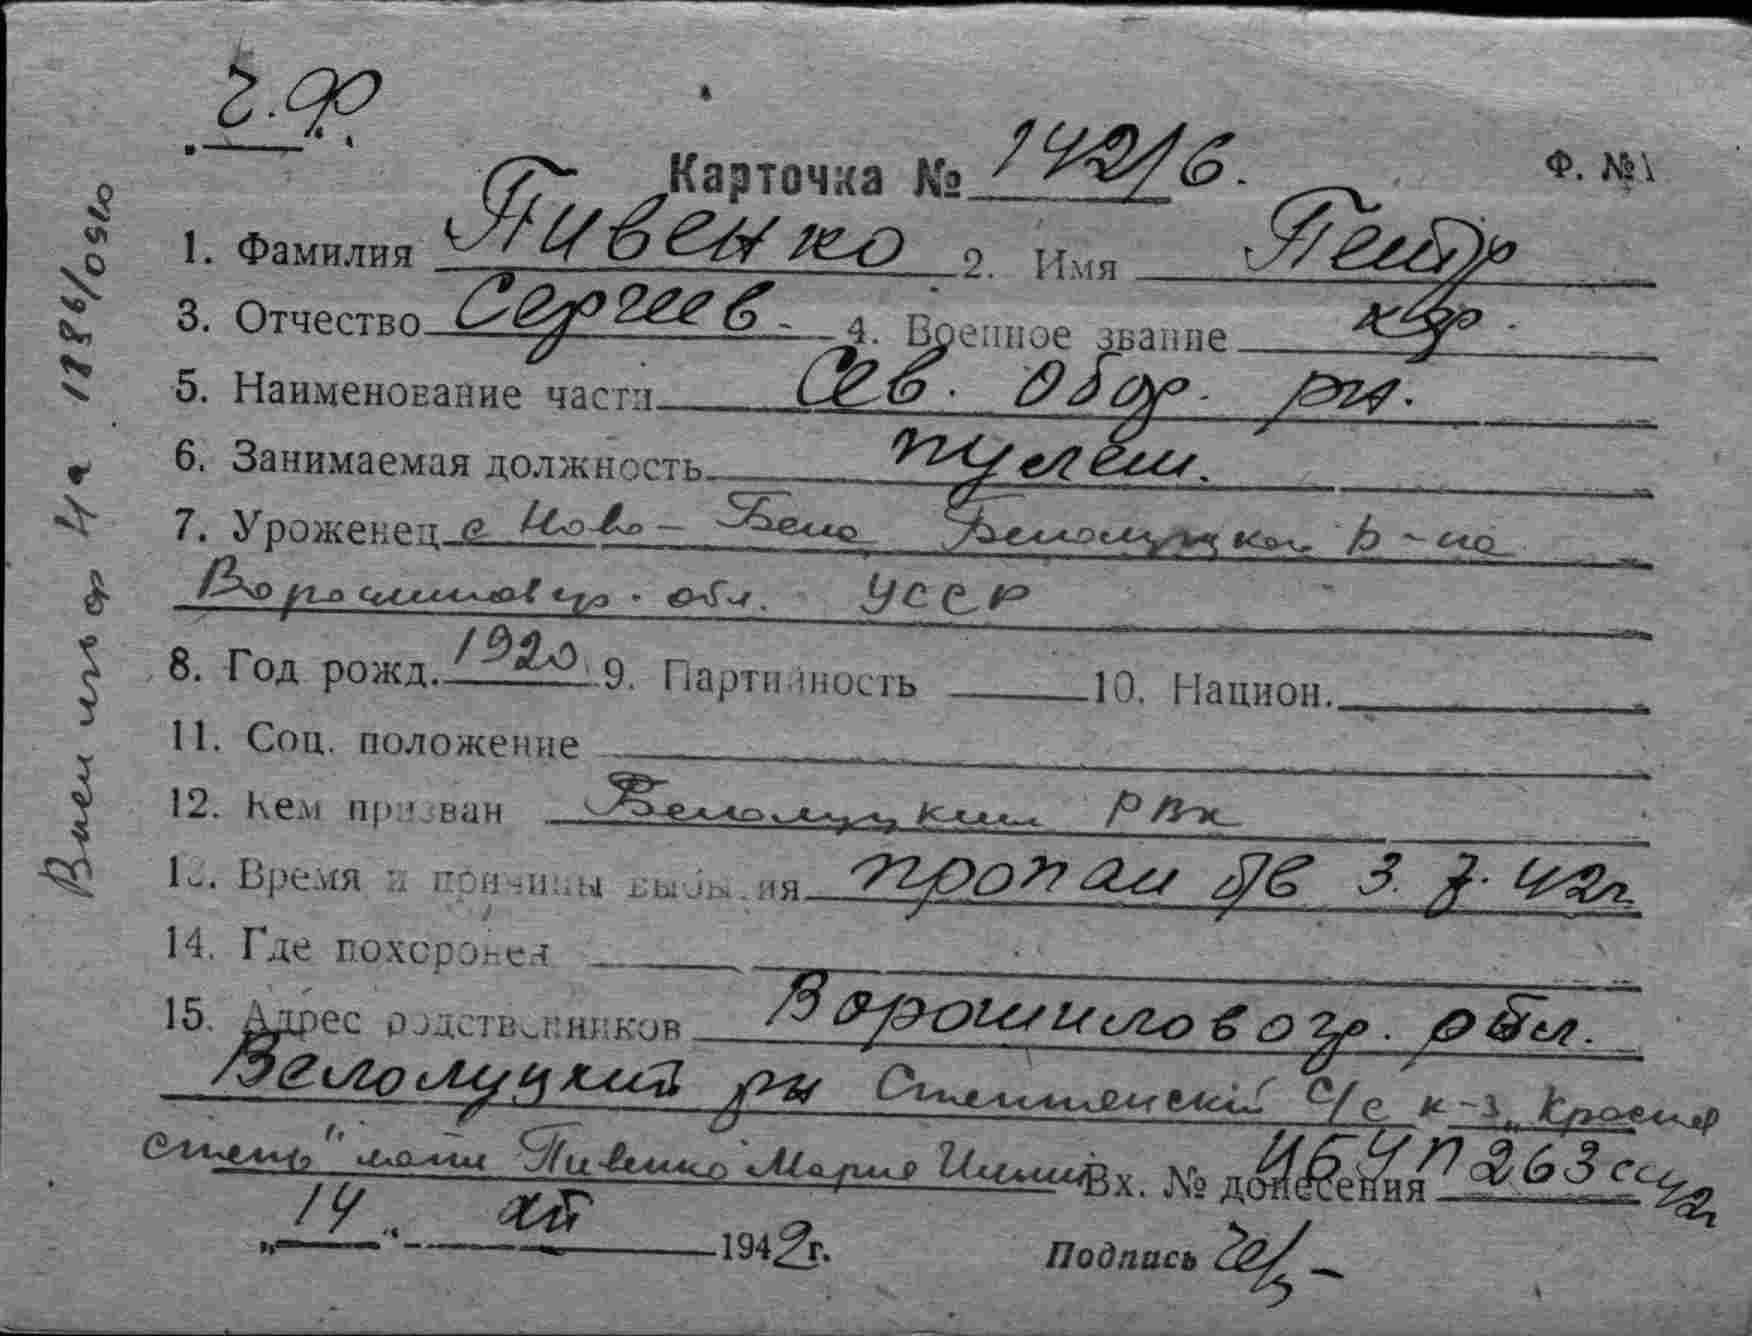 ч.ф
Карточка № 14216. Ф. №1
1. Фамилия Пивенко 2. Имя Петр
3. Отчество Сергеев. 4. Военное звание кр.
5. Наименование части Сев. обор. рн.
6. Занимаемая должность пулем.
7. Уроженец с Ново-Бела Белолуцкого р-на
Ворошиловгр. обл. УССР
8. Год рожд. 1920 9. Партийность 10. Национ.
11. Соц. положение
12. Кем призван Белолуцким РВК
13. Время и причины выбытия пропал б/в 3.7.42г.
14. Где похоронен
15. Адрес родственников Ворошиловогр. обл.
Белолуцкий рн с/с к-з „Красная
степь" мати Пивенко Мария Вх. № донесения 263сс 42г
„14" XII 1942г. Подпись